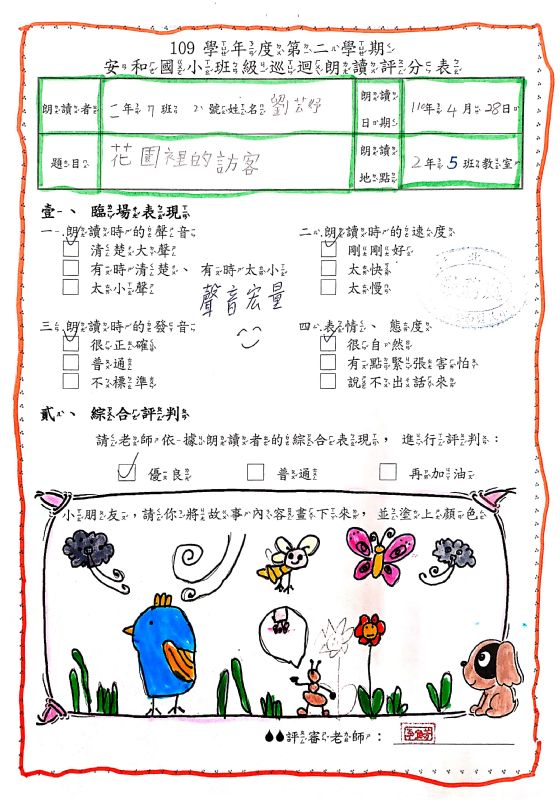 109 學年度第二學期
安和國小班級巡迴朗讀評分表
朗讀者 二年 7 班 21 號姓名 劉芸妤 朗讀日期 110年 4 月 28日
題目 花園裡的訪客 朗讀地點 2 年 5 班教室
壹、臨場表現
一、朗讀時的聲音 二、朗讀時的速度
清楚大聲 剛剛好
有時清楚、有時太小 太快
太小聲 太慢
聲音宏量
三、朗讀時的發音 四、表情、態度
很正確 很自然
普通 有點緊張害怕
不標準 說不出話來
貳、綜合評判
請老師依據朗讀者的綜合表現,進行評判:
優良 普通 再加油
小朋友,請你將故事內容畫下來,並塗上顏色
評審老師: